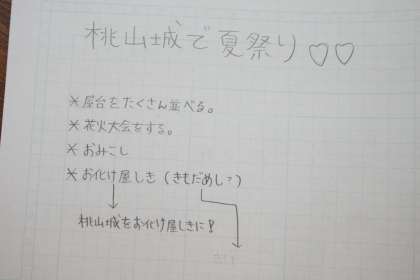 桃山城で夏祭り♡♡
*屋台をたくさん並べる。
*花火大会をする。
*おみこし
*お化け屋しき(きもだめし?)
桃山城をお化け屋しきに!